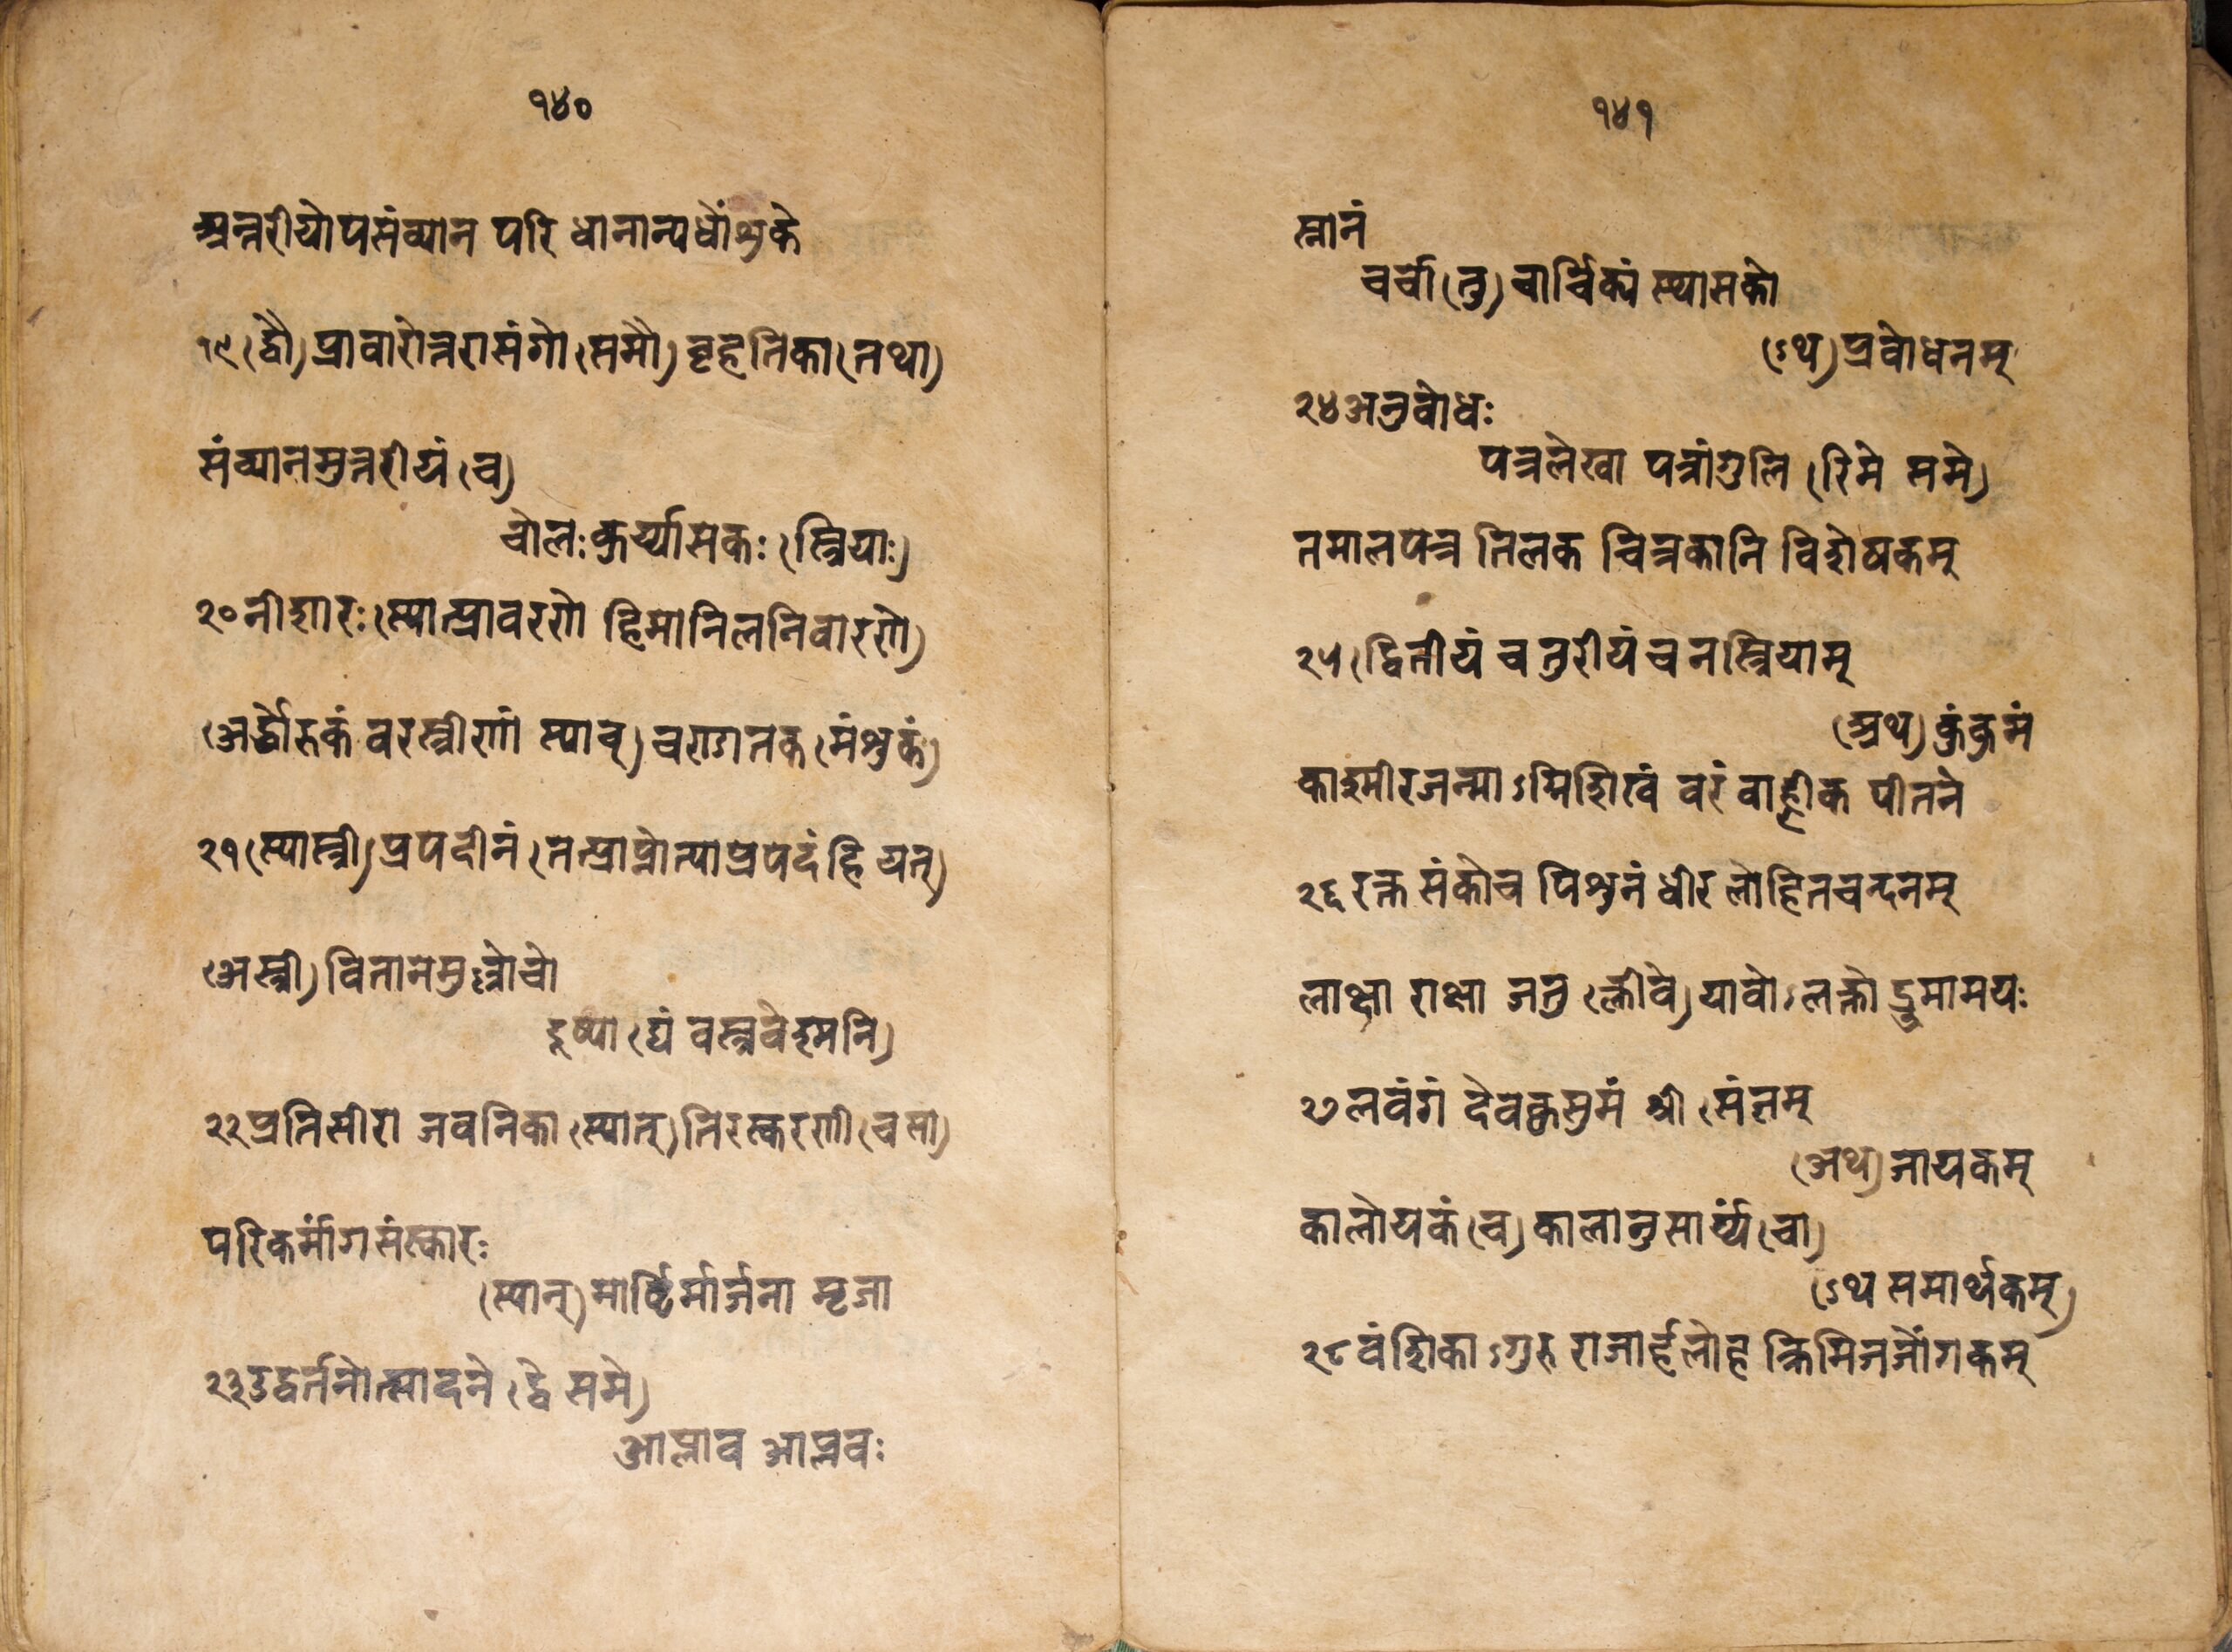 १४०
अन्तरीयोपसंव्यान परि धानान्यधोंशुके
१९(द्वौ)प्रावारोत्तरासंगो(समौ)वृहतिका(तथा)
संव्यानमुत्तरीयं(च)
चोलःकुर्य्यासकः(स्त्रियाः)
२०नीशारः(स्यात्प्रावरणे हिमानिलनिवारणे)
(अर्द्धोरुकं वरस्त्रीणां स्याच्)चराडातक(मंशुकं)
२१(स्यास्त्री)प्रपदीनं(तत्प्राप्नोत्याप्रपदंहि यत्)
(अस्त्री)वितानमुल्लोचो
दूष्या(द्यं वस्त्रवेश्मनि)
२२प्रतिसीरा जवनिका(स्यात्)तिरस्करणी(चसा)
परिकर्मांगसंस्कारः
(स्यात्)मार्ष्टिर्मार्जना मृजा
२३उद्वर्तनोत्सादने(द्वे समे)
आप्लाव आप्लवः
१४१
स्नानं
चर्चा(तु)चार्चिक्यं स्थासको
(ऽथ)प्रवोधनम्
२४अनुवोधः
पत्रलेखा पत्रांगुलि(रिमे समे)
तमालपत्र तिलक चित्रकानि विशेषकम्
२५(द्वितीयं चतुरीयं च नस्त्रियाम्
(अथ)कुंकुमं
काश्मीरजन्माऽग्निशिखं वरं वाह्लीक पीतने
२६रक्त संकोच पिशुनं धीर लोहितचन्दनम्
लाक्षा राक्षा जतु(क्लीवे)यावोऽलक्तो द्रुमामयः
२७लवंगं देवकुसुमं श्री(संज्ञम्
(अथ)जायकम्
कालीयकं(च)कालानुसार्य्यं(चा)
(ऽथ समार्थकम्)
२८वंशिकाऽगुरु राजार्हलोह क्रिमिजजोंगकम्